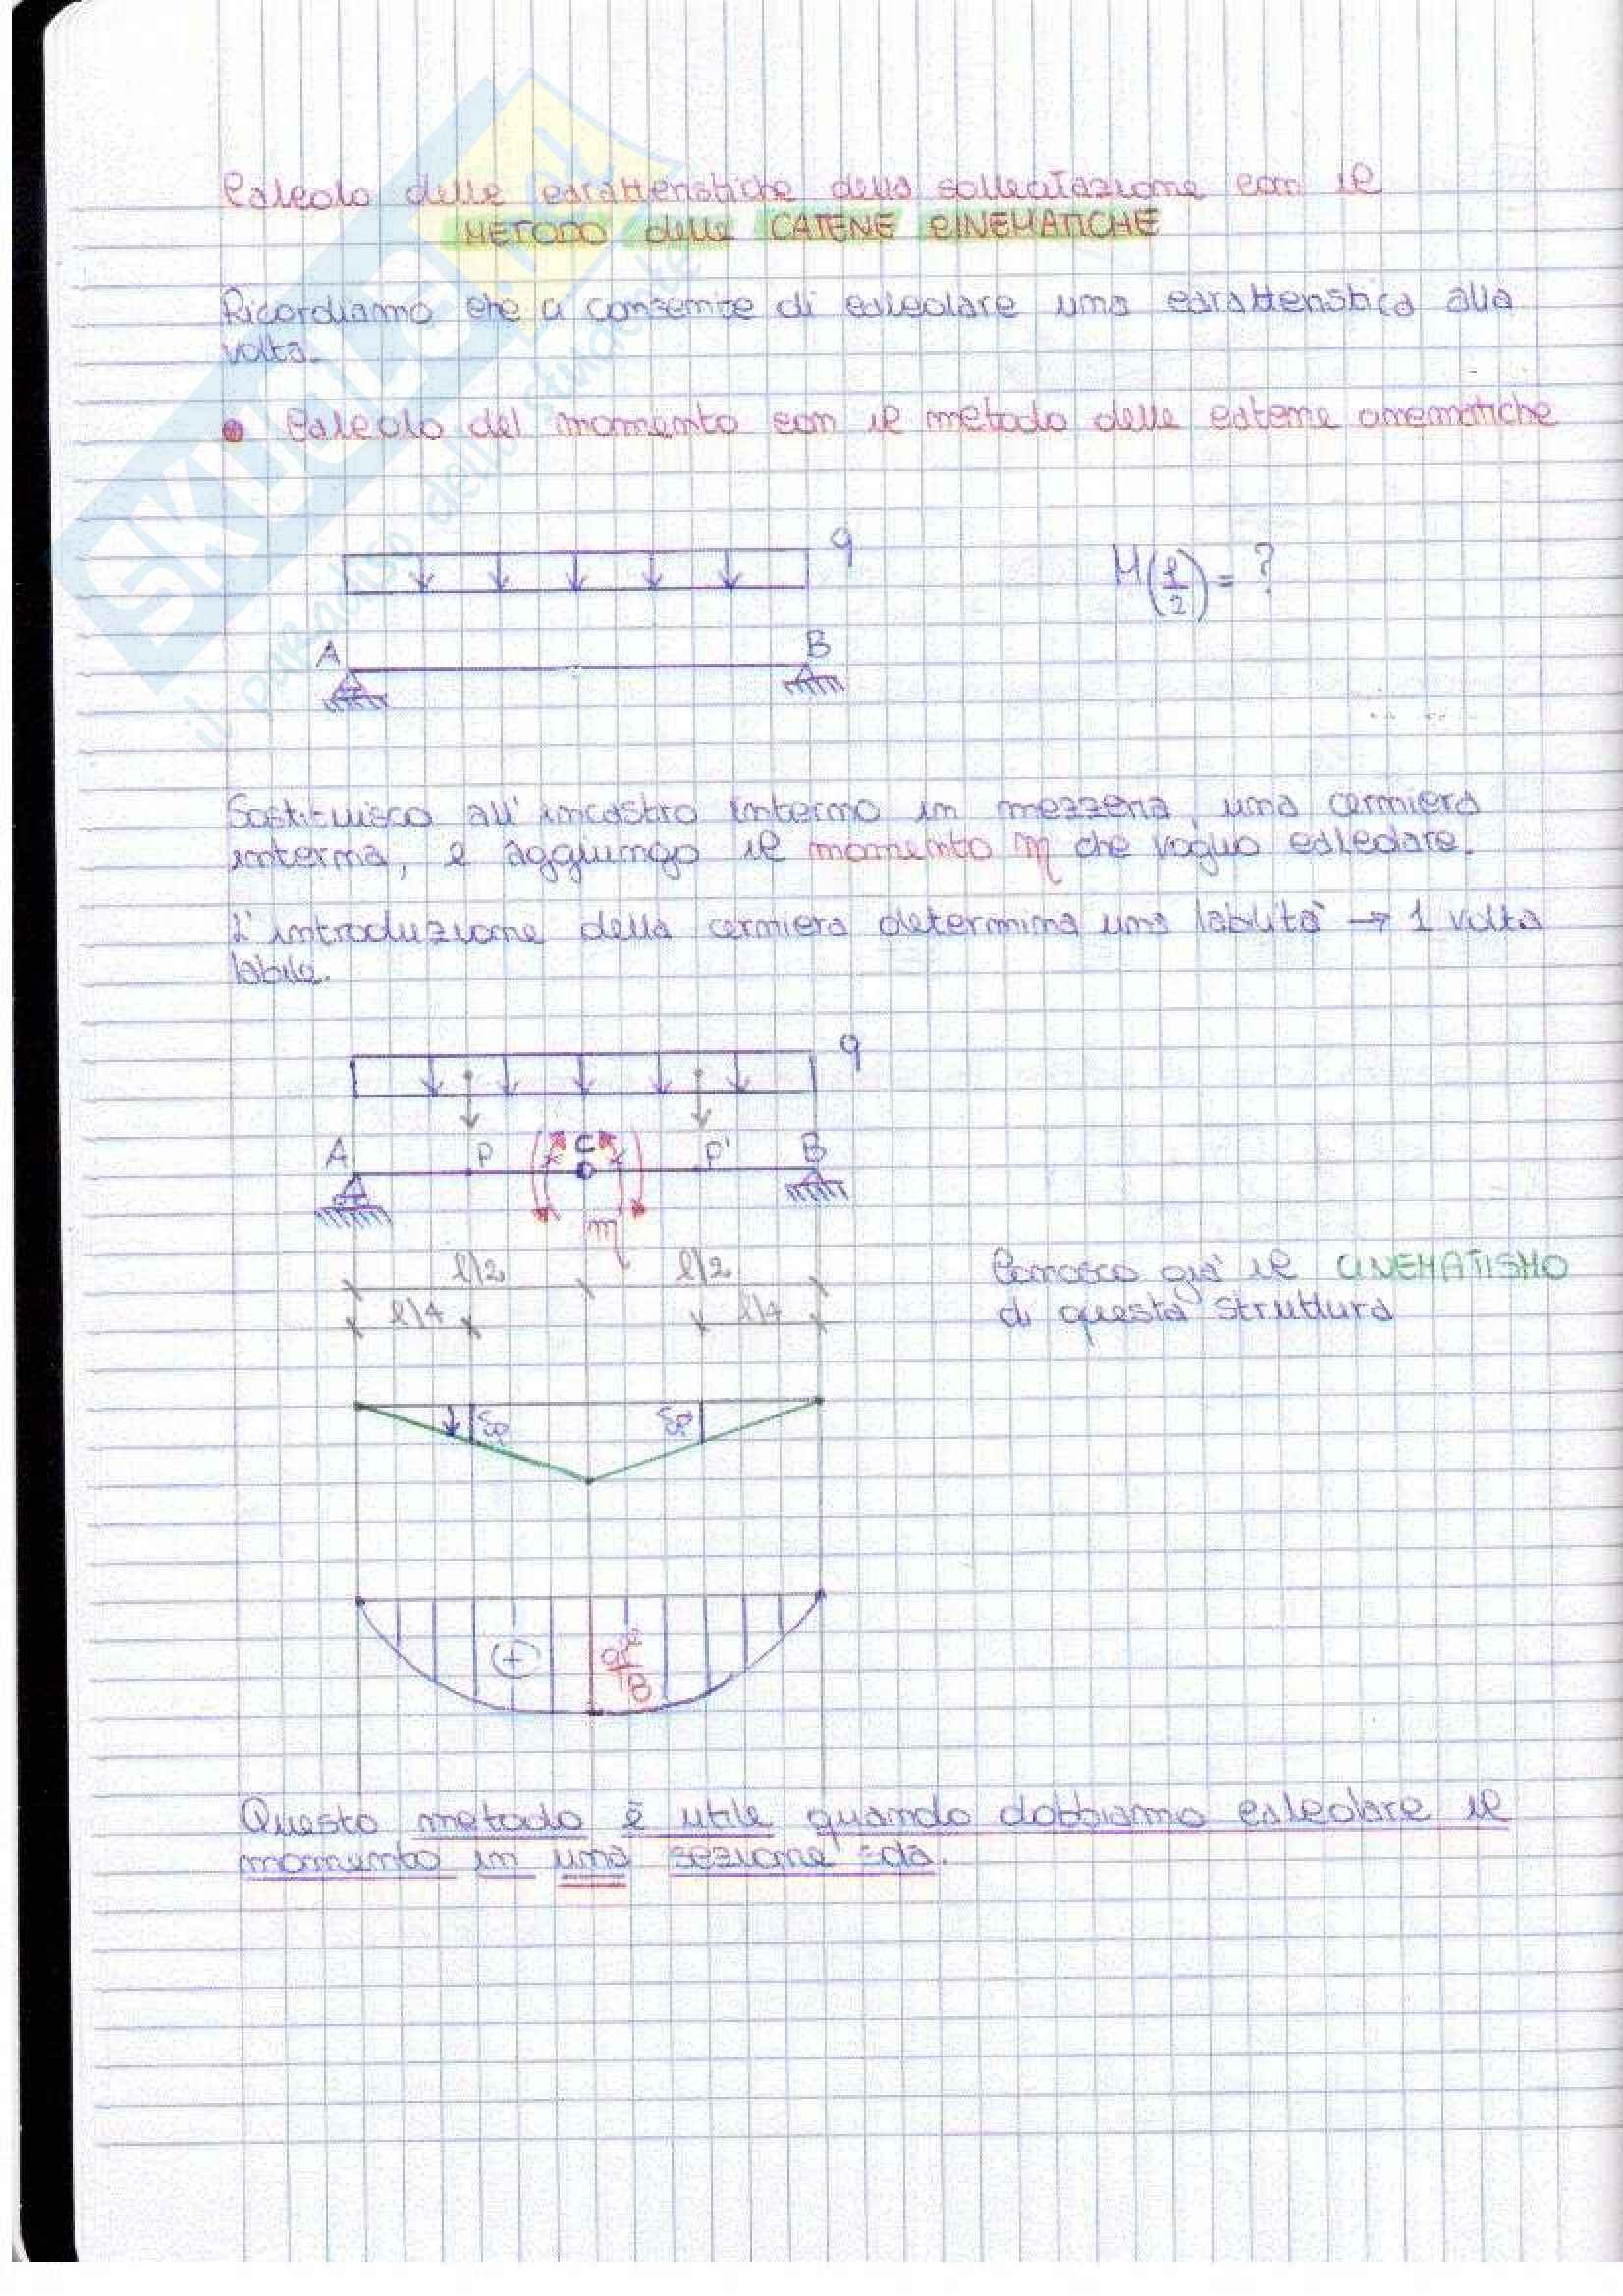 Calcolo delle caratteristiche della sollecitazione con il
METODO delle CATENE CINEMATICHE
Ricordiamo che ci consente di calcolare una caratteristica alla
volta.
• Calcolo del momento con il metodo delle catene cinematiche
q
M(l/2) = ?
A B
Sostituisco all'incastro interno in mezzeria, una cerniera
interna, e aggiungo il momento m che voglio calcolare.
L'introduzione della cerniera determina una labilità → 1 volta
labile.
q
A P C P' B
m
l/2 l/2
l/4 l/4
Conosco già il CINEMATISMO
di questa struttura
δp δp'
+ ql²/8
Questo metodo è utile quando dobbiamo calcolare il
momento in una sezione sola.
SKUOLA
il paradiso dello studente